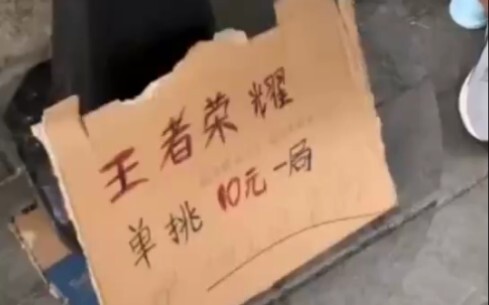 王者荣耀
单挑10元一局